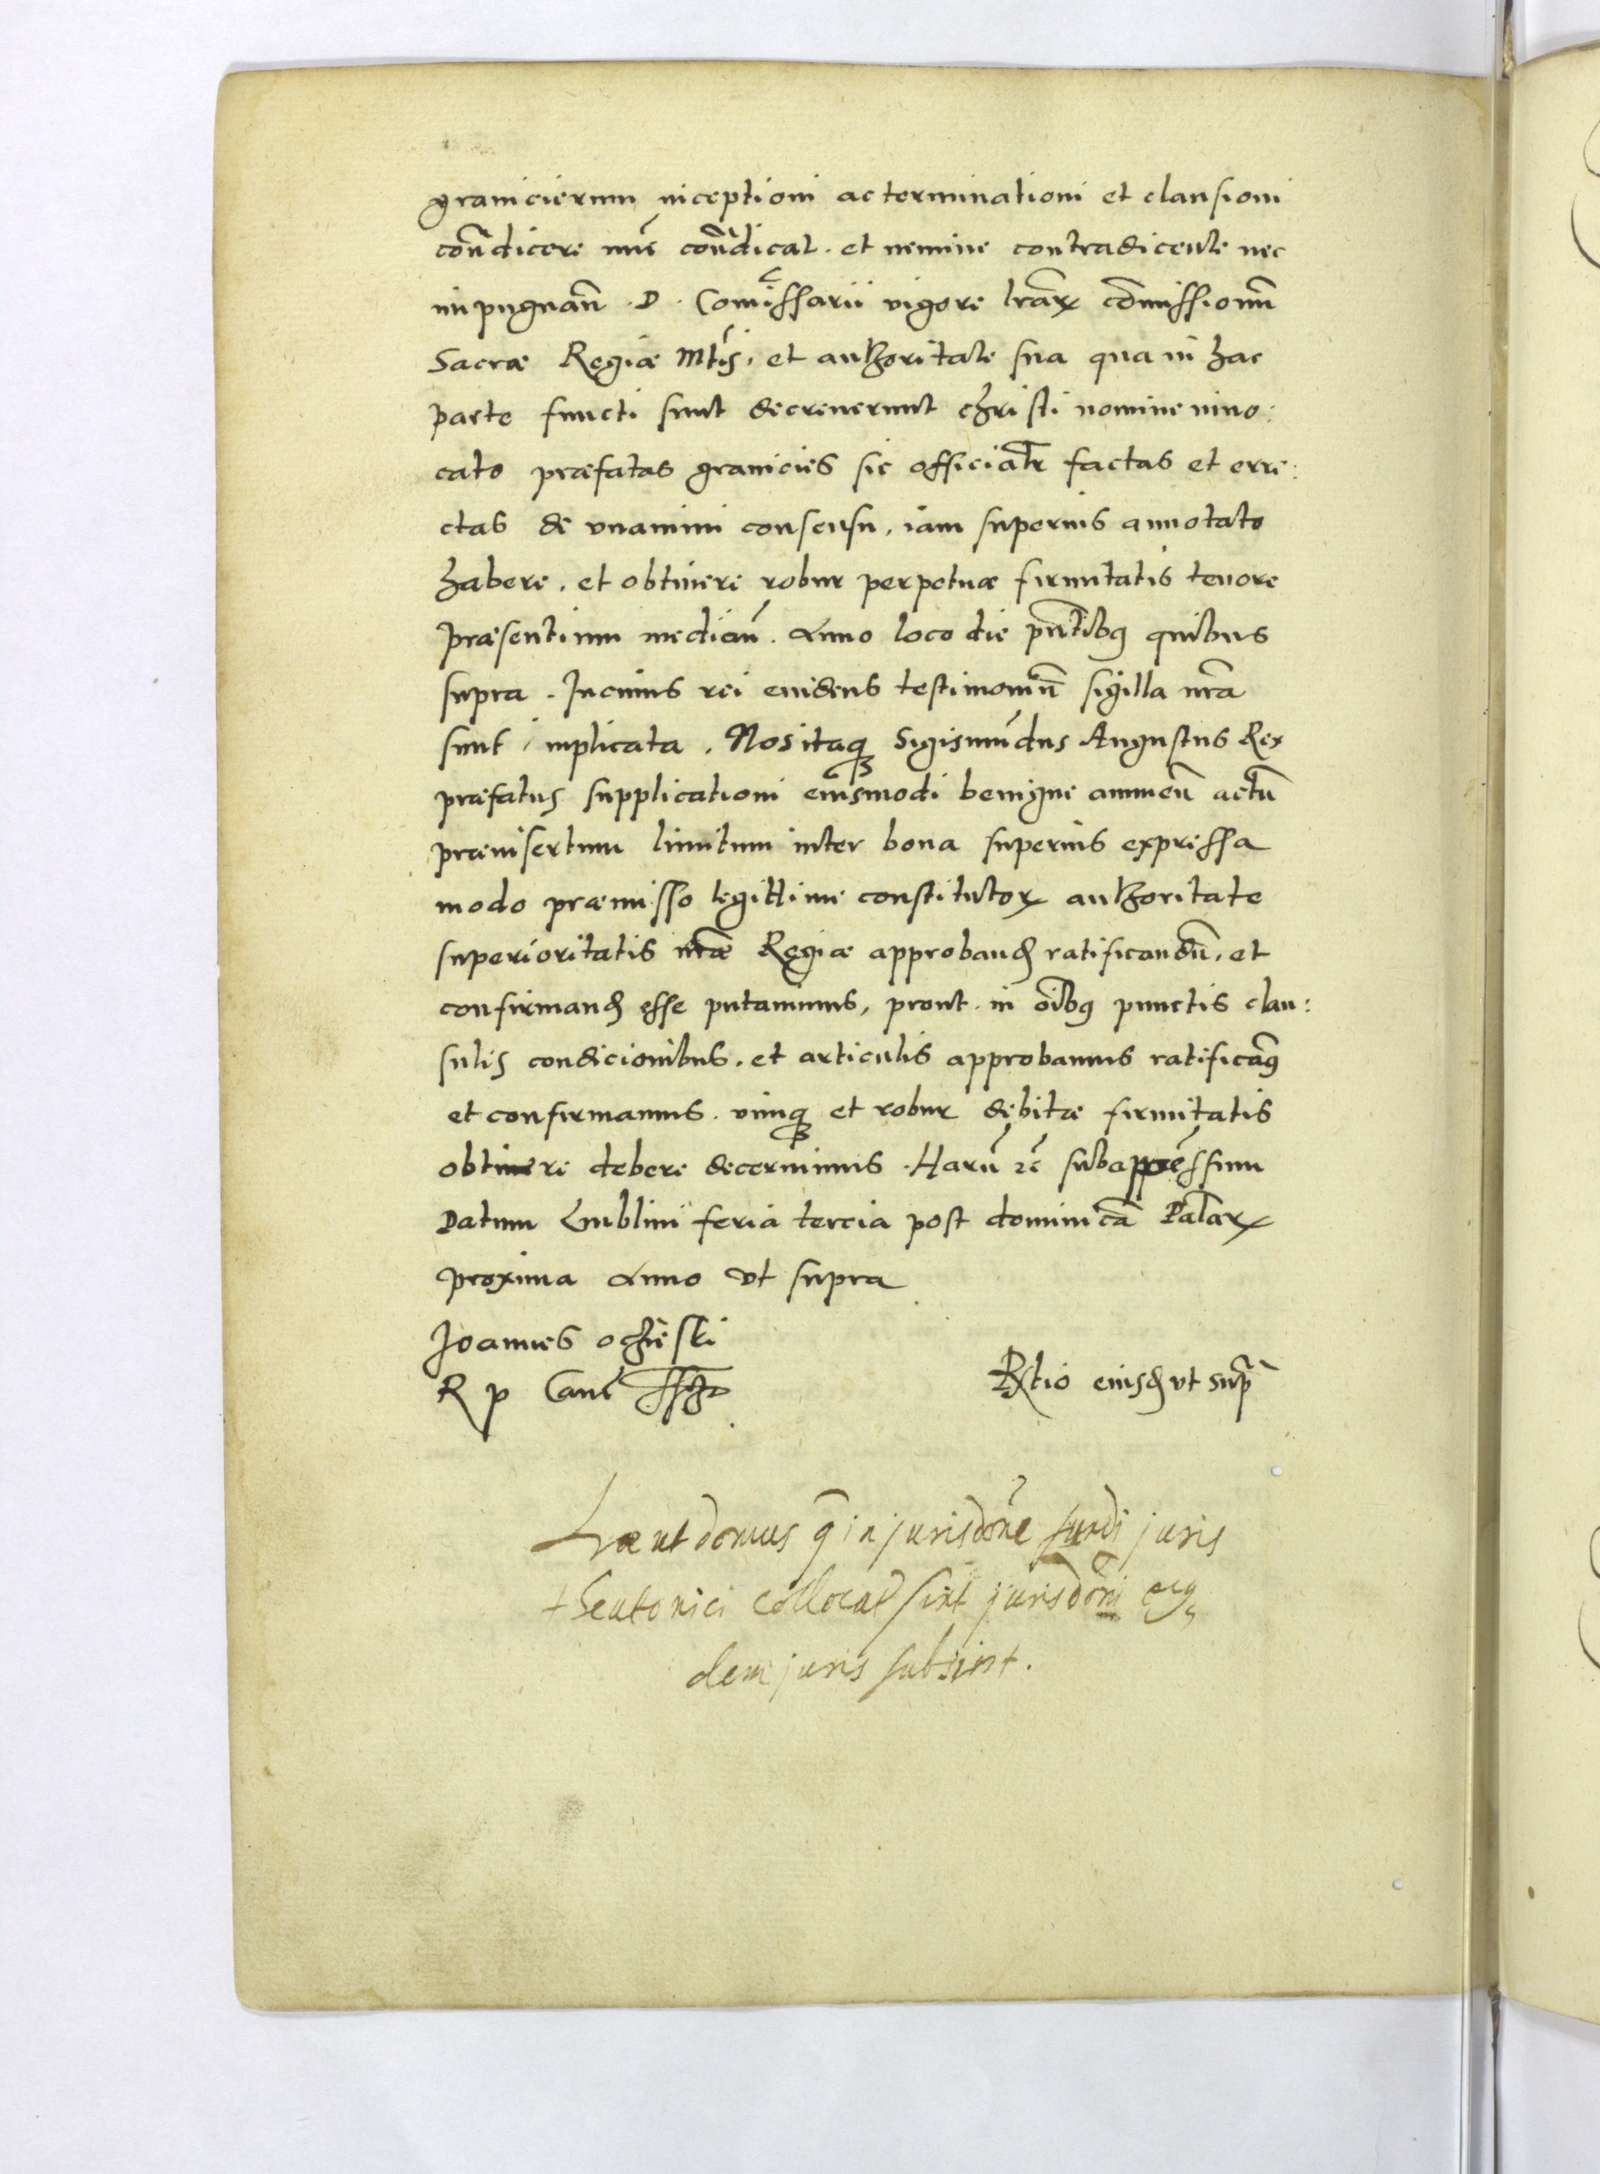 granicierum inceptioni ac terminationi et clausioni
cont̃dicere nũc cont̃dicat. et nemine contradicente nec
impugnañ. D. Com̃issarii vigore lr̃arꝝ com̃issionũ
Sacræ Regiæ Mt̃is. et authoritate sua qua in hac
parte functi sunt decreverunt christi nomine invo:
cato præfatas granicies sic officiatr̃ factas et erre:
ctas de unanimi consensu. iam superius annotato
habere. et obtinere robur perpetuæ firmitatis tenore
præsentium mediañ. Anno loco die pñtibꝰ quibus
supra. In cuius rei evidens testimoniũ sigilla nr̃a
sunt implicata. Nos itaqꝫ Sigismũdus Augustus Rex
præfatus supplicationi eiusmodi benigne annueñ actũ
præinsertum limitum inter bona superius expressa
modo præmisso legittime constitutorꝝ authoritate
superioritatis nr̃æ Regiæ approband ratificandũ. et
confirmand esse putavimus, prout in oĩbꝰ punctis clau:
sulis condicionibus. et articulis approbamus ratificamꝰ
et confirmamus. vimqꝫ et robur debitæ firmitatis
obtinere debere decernimus. Harũ rẽ subappressum
Datum Lublini feria tercia post dominicã Palarꝝ
proxima Anno ut supra
Joannes ocÞieski
R p Canc̃
Rtio eiusd ut supr̃
ut domus q̃ in jurisdoñe fundi juris
theutonici collocat̃ sint jurisdoñi eiꝰ
dem juris subsint.